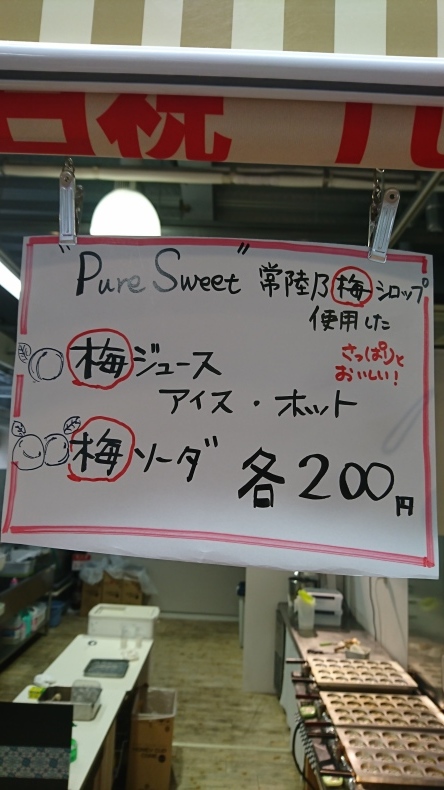 日祝
"Pure Sweet" 常陸乃梅シロップ
使用した
梅ジュース
さっぱりと
おいしい!
アイス・ホット
梅ソーダ 各200円